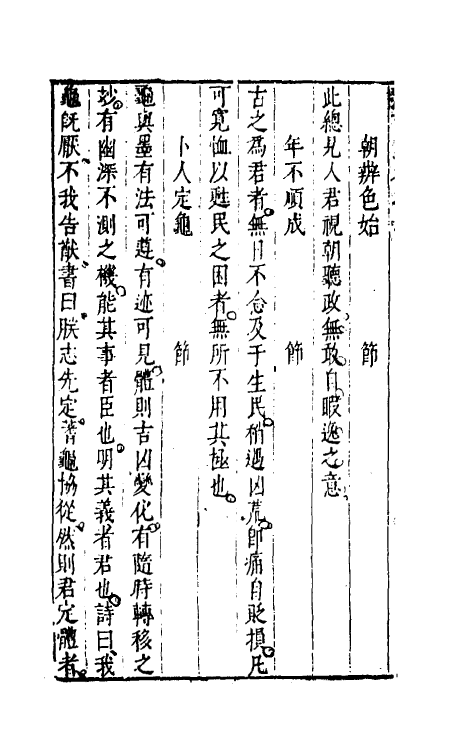 朝辨色始　　　節
此總見人君視朝聽政無敢自暇逸之意
年不順成　　　節
古之爲君者無日不念及于生民稍遇凶荒卽痛自貶損凡
可寬恤以甦民之困者無所不用其極也
卜人定龜　　　節
龜與墨有法可遵有迹可見體則吉凶變化有隨時轉移之
玅有幽深不測之機能其事者臣也明其義者君也詩曰我
龜旣厭不我告猷書曰朕志先定蓍龜協從然則君定體者